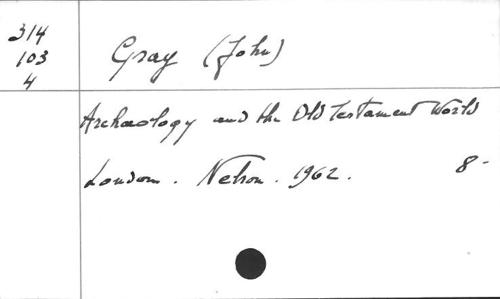 314
103
4
Gray (John)
Archaeology and the Old Testament World
London. Nelson. 1962. 8-